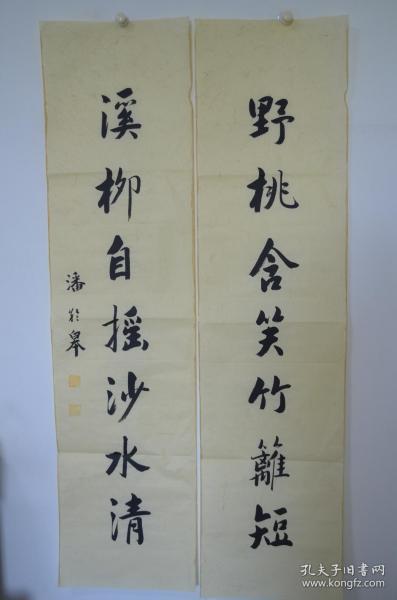 野桃含笑竹籬短
溪柳自摇沙水清
潘於皋
孔夫子旧书网
www.kongfz.com